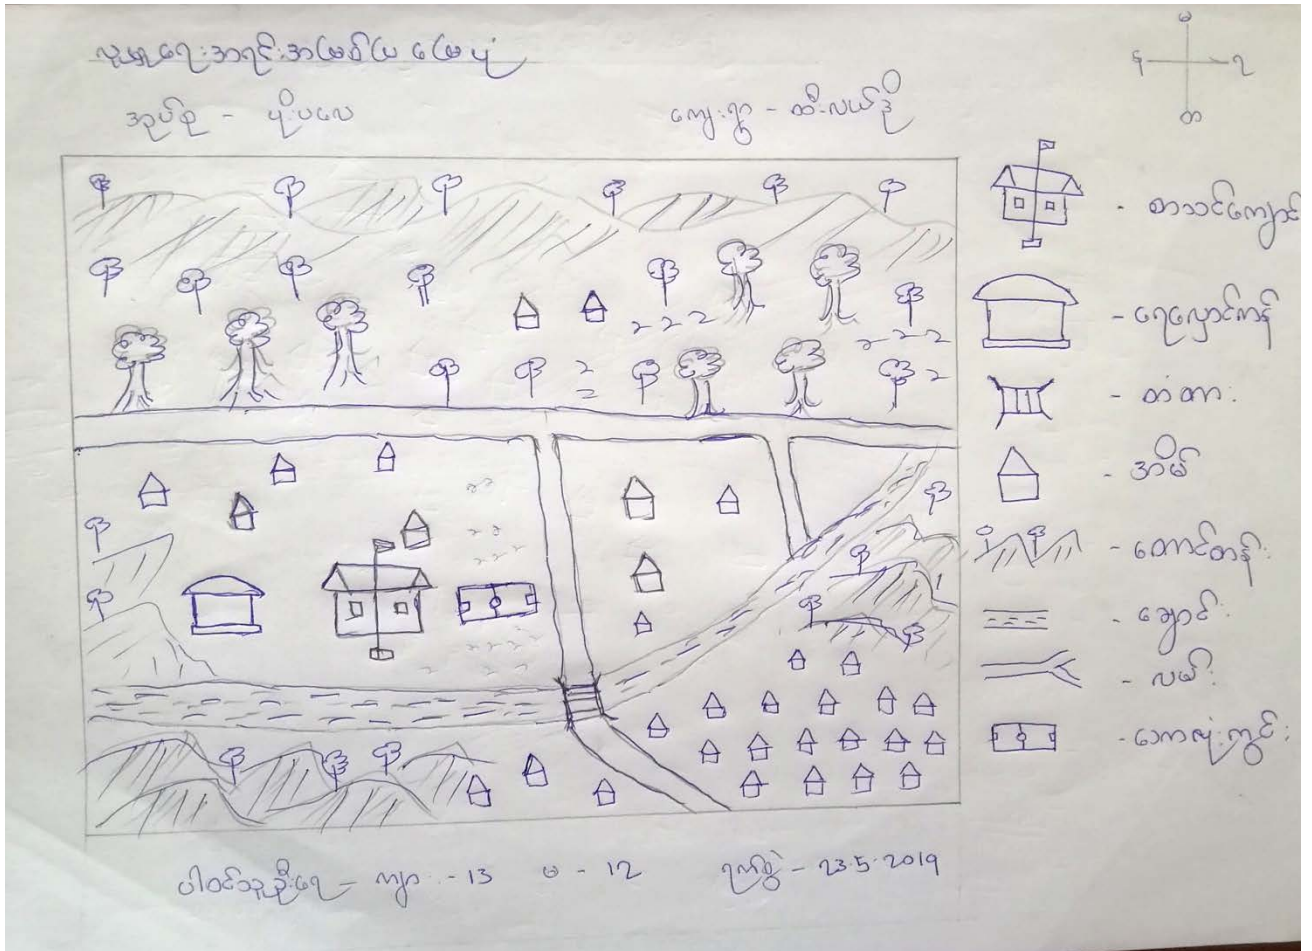 လူမှုရေးအရင်းအမြစ်ပြ မြေပုံ
အုပ်စု - ပိုးပလေ
ကျေးရွာ - ထီးလယ်ဒို
မ
န
ရ
တ
- စာသင်ကျောင်း
- ရေလှောင်ကန်
- တံတား
- အိမ်
- တောင်တန်း
- ချောင်း
- လမ်း
- ဘောလုံးကွင်း
ပါဝင်သူဦးရေ - ကျား - 13 မ - 12 ရက်စွဲ - 23.5.2019